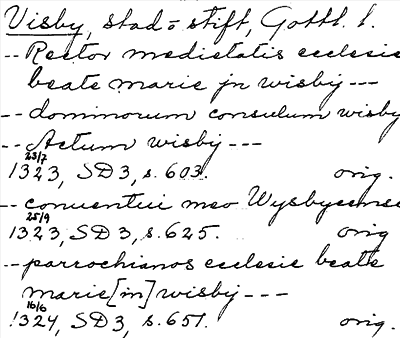 Visby, stad o stift, Gottl. l.
-- Rector medietatis ecclesie
beate marie jn wisby ---
-- dominorum consulum wisby
-- Actum wisby ---
23/7
1323, SD 3, s. 603. orig.
-- conuentui meo Wysbycense
25/9
1323, SD 3, s. 625. orig
-- parrochianos ecclesie beate
marie [in] wisby ---
16/6
1324, SD 3, s. 651. orig.